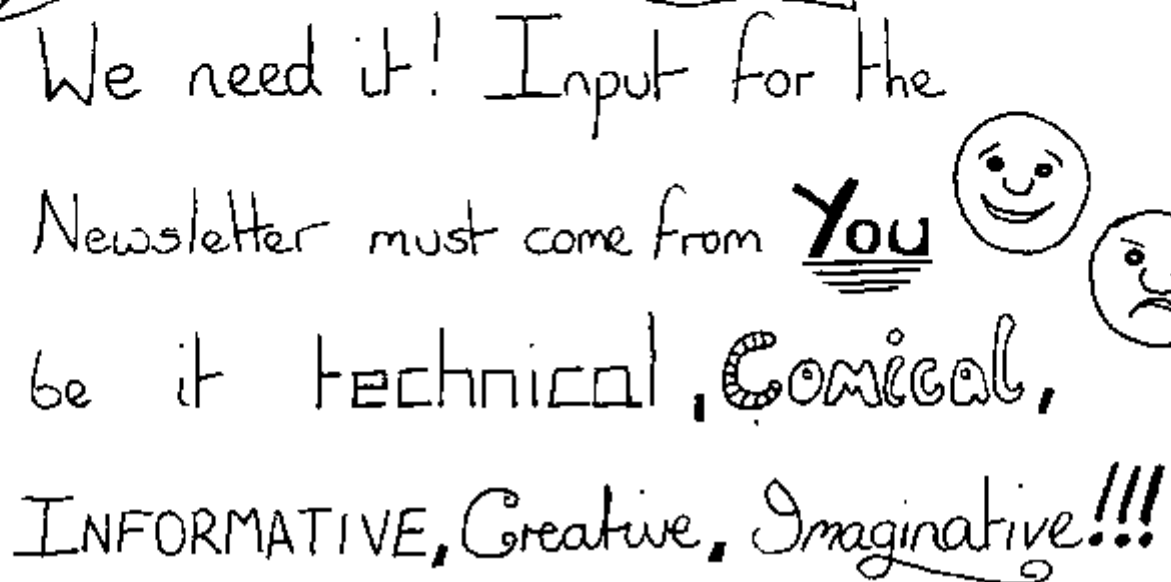 We need it! Input for the
Newsletter must come from You
be it technical, Comical,
INFORMATIVE, Creative, Imaginative!!!